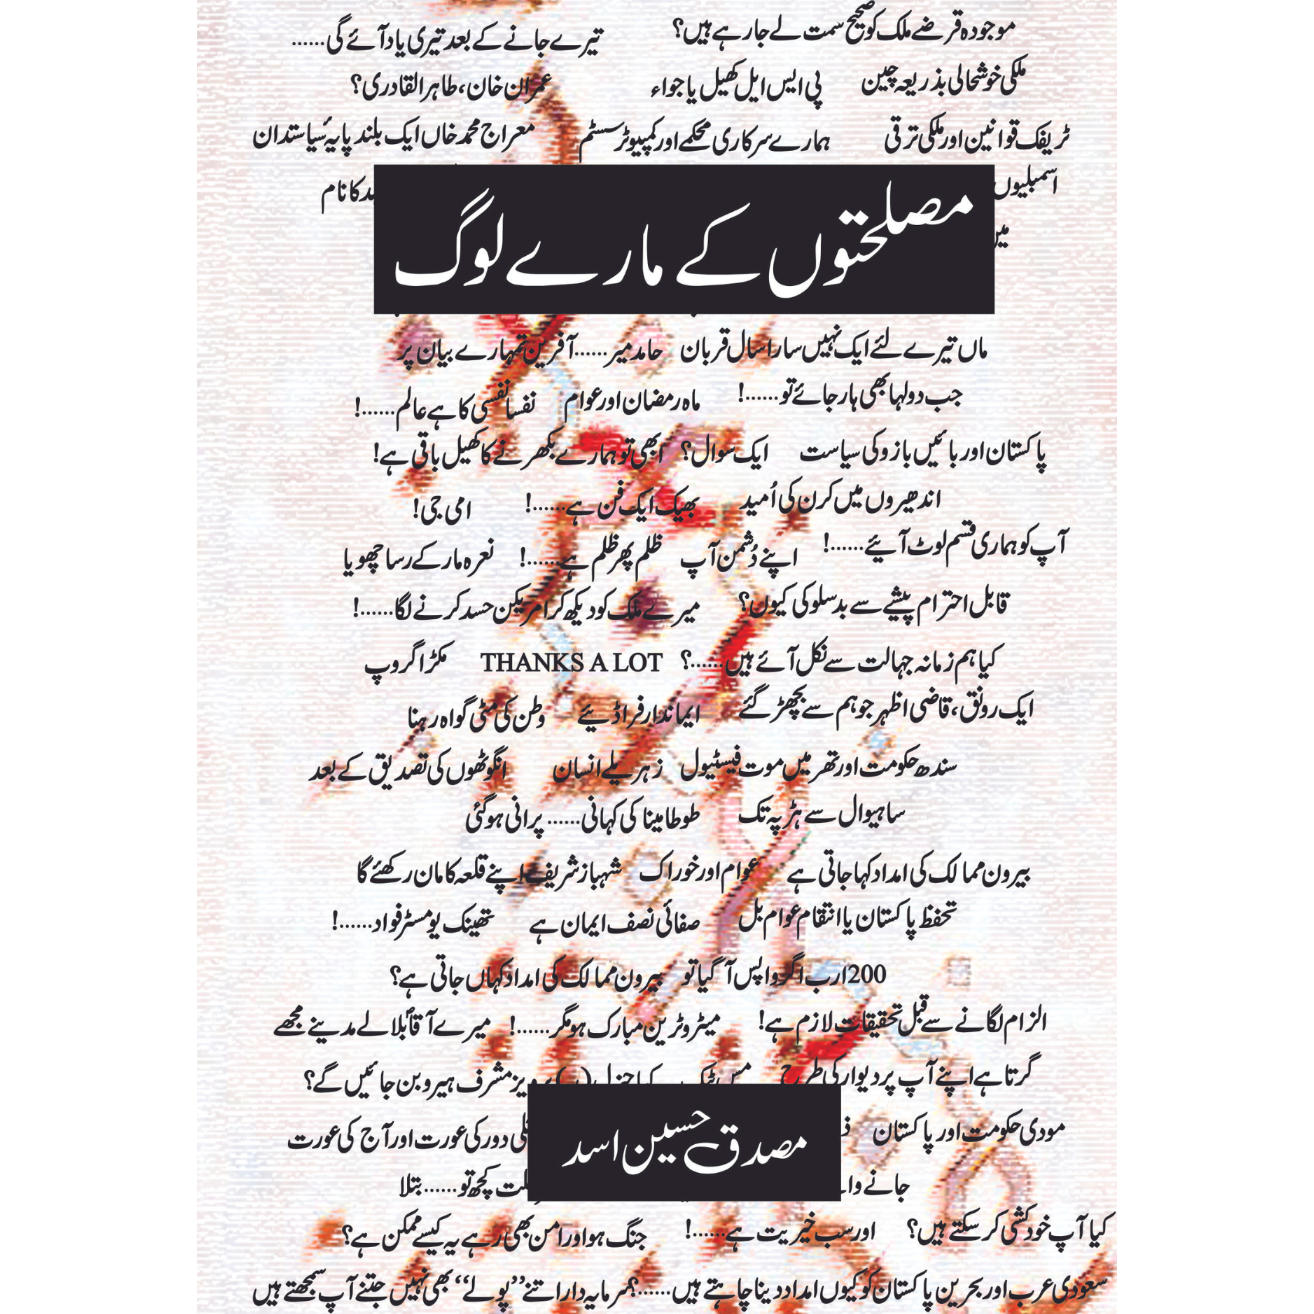 موجودہ قرضے ملک کو صحیح سمت لے جارہے ہیں؟ تیرے جانے کے بعد تیری یاد آئے گی......
ملکی خوشحالی بذریعہ چین پی ایس ایل کھیل یا جواء عمران خان، طاہر القادری؟
ٹریفک قوانین اور ملکی ترقی ہمارے سرکاری محکمے اور کمپیوٹر سسٹم معراج محمد خاں ایک بلند پایہ سیاستدان
اسمبلیوں کا نام
مصلحتوں کے مارے لوگ
ماں تیرے لئے ایک نہیں سارا سال قربان حامد میر......آفرین تمہارے بیان پر
جب دولہا بھی ہار جائے تو......! ماہ رمضان اور عوام نفسا نفسی کا ہے عالم......!
پاکستان اور بائیں بازو کی سیاست ایک سوال؟ ابھی تو ہمارے بکھرنے کا کھیل باقی ہے!
اندھیروں میں کرن کی اُمید بھیک ایک فن ہے......! امی جی!
آپ کو ہماری قسم لوٹ آئیے......! اپنے دُشمن آپ ظلم پھر ظلم ہے......! نعرہ مار کے رسا چھویا
قابل احترام پیشے سے بدسلوکی کیوں؟ میرے ملک کو دیکھ کر امریکن حسد کرنے لگا......!
کیا ہم زمانہ جہالت سے نکل آئے ہیں......؟ THANKS A LOT مکڑا گروپ
ایک رونق، قاضی اظہر جو ہم سے بچھڑ گئے ایماندار فراڈیئے وطن کی مٹی گواہ رہنا
سندھ حکومت اور تھر میں موت فیسٹیول زہریلے انسان انگوٹھوں کی تصدیق کے بعد
ساہیوال سے ہڑپہ تک طوطا مینا کی کہانی......پرانی ہوگئی
بیرون ممالک کی امداد کہا جاتی ہے عوام اور خوراک شہباز شریف اپنے قلعہ کا مان رکھئے گا
تحفظ پاکستان یا انتقام عوام بل صفائی نصف ایمان ہے تھینک یو مسٹر فواد......!
200 ارب اگر واپس آگیا تو بیرون ممالک کی امداد کہاں جاتی ہے؟
الزام لگانے سے قبل تحقیقات لازم ہے! میٹرو ٹرین مبارک ہو مگر......! میرے آقاؐ بلالے مدینے مجھے
گرتا ہے اپنے آپ پر دیوار کی طرح کیا جنرل (ر) پرویز مشرف ہیرو بن جائیں گے؟
مودی حکومت اور پاکستان دور کی عورت اور آج کی عورت
مصدق حسین اسد
جانے کچھ تو......بتلا
کیا آپ خودکشی کرسکتے ہیں؟ اور سب خیریت ہے......! جنگ ہو اور امن بھی رہے یہ کیسے ممکن ہے؟
سعودی عرب اور بحرین پاکستان کو کیوں امداد دینا چاہتے ہیں......؟ سرمایہ دار اتنے ”پولے“ بھی نہیں جتنے آپ سمجھتے ہیں